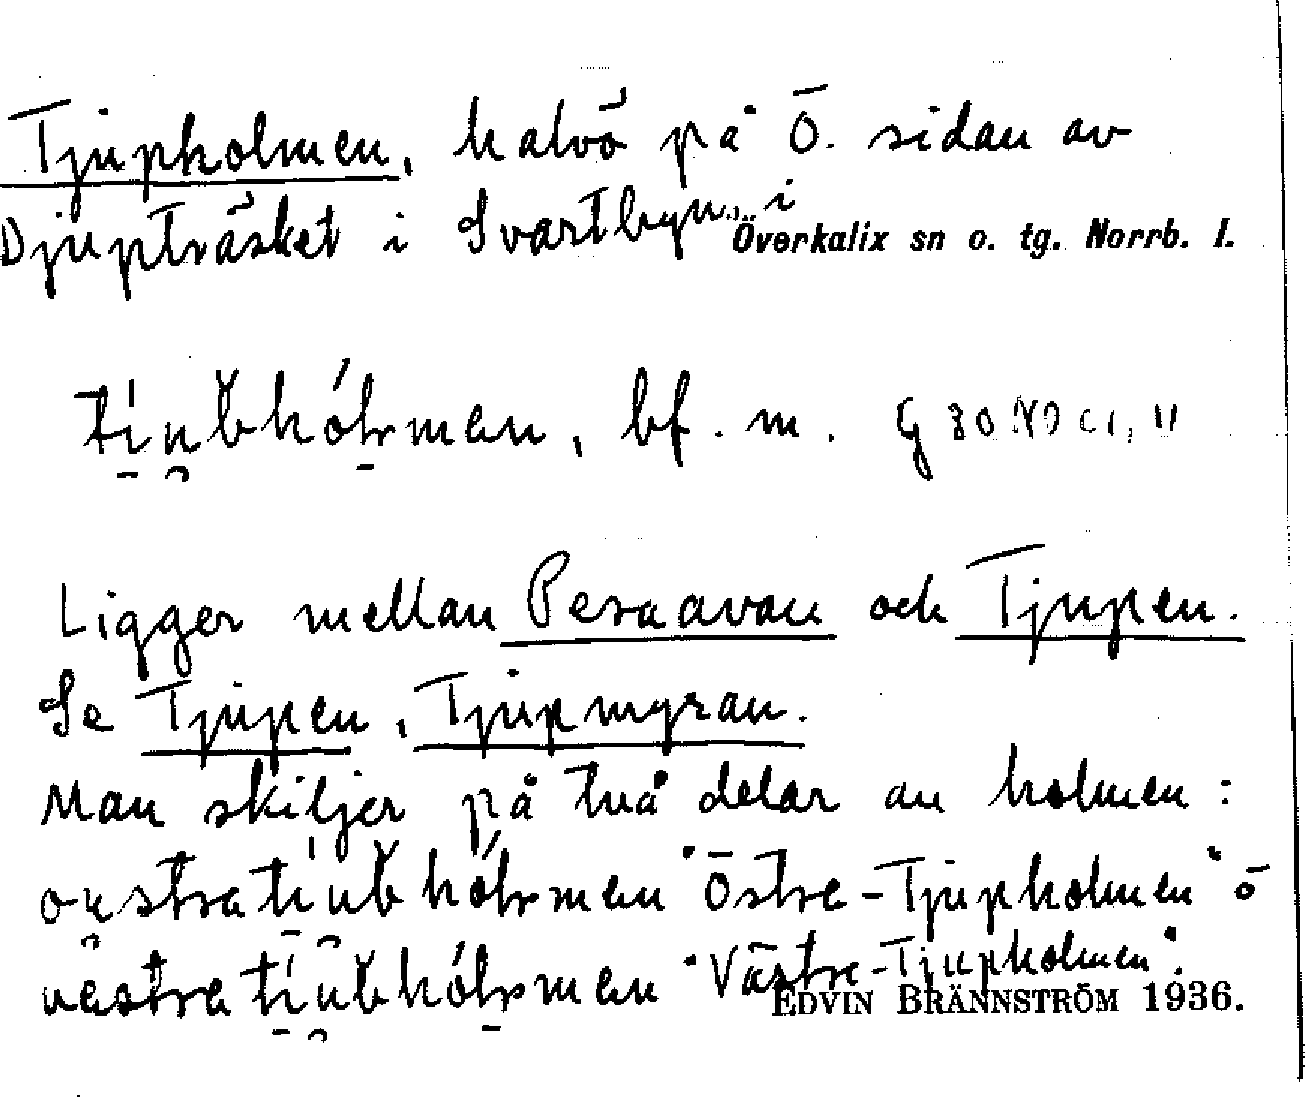 Tjupholmen, halvö på Ö. sidan av
Djupträsket i Svartbyn, i
Överkalix sn o. tg. Norrb. l.
bf. m.
Ligger mellan Peraavan och Tjupen.
Se Tjupen, Tjupmyran.
Man skiljer på två delar av holmen:
"Östre-Tjupholmen" o
"Västre-Tjupholmen".
EDVIN BRÄNNSTRÖM 1936.